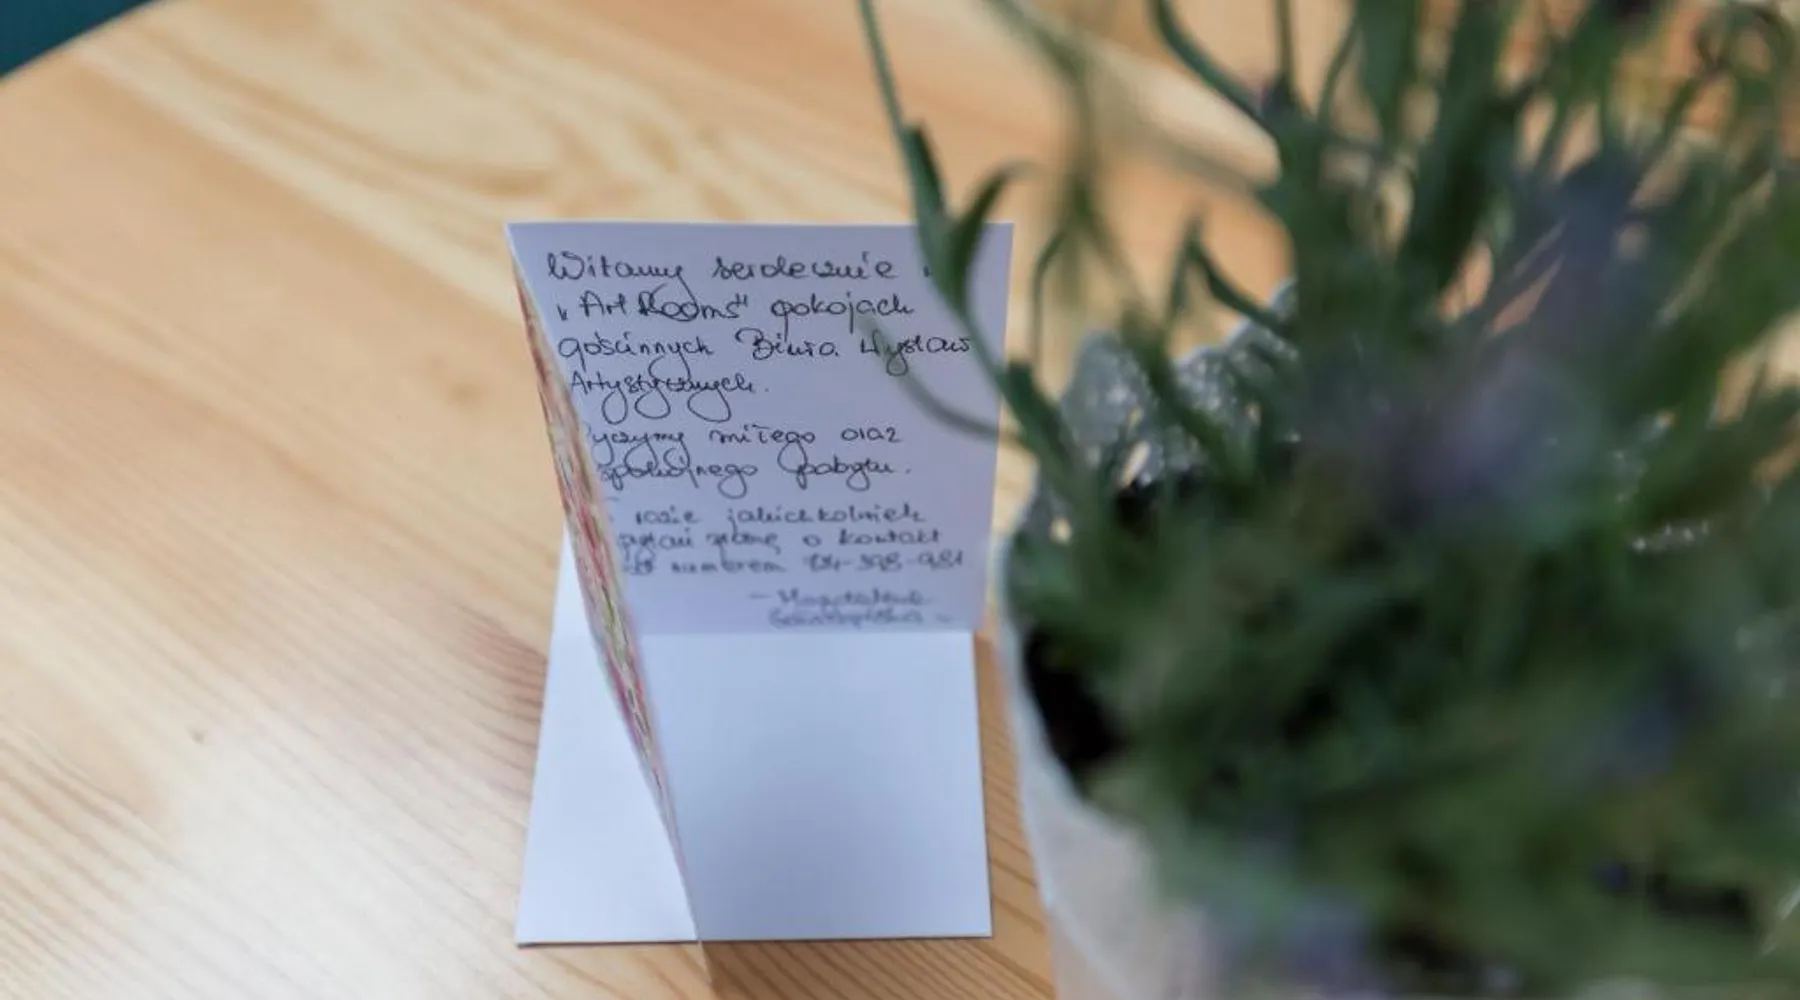 Witamy serdecznie w
"Art Rooms" pokojach
gościnnych Biura Wystaw
Artystycznych.
Życzymy miłego oraz
spokojnego pobytu.
razie jakichkolwiek
pytań proszę o kontakt
pod numerem
- Magdalena